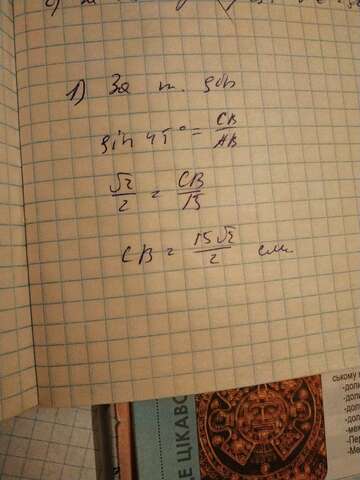 1) За т. sin
sin 45° = CB/AB
√2/2 = CB/15
CB = 15√2/2 см.
Е ЦІКАВО
ському
-доли
-доли
-доли
-доли
-меж
-Пер
-Ме